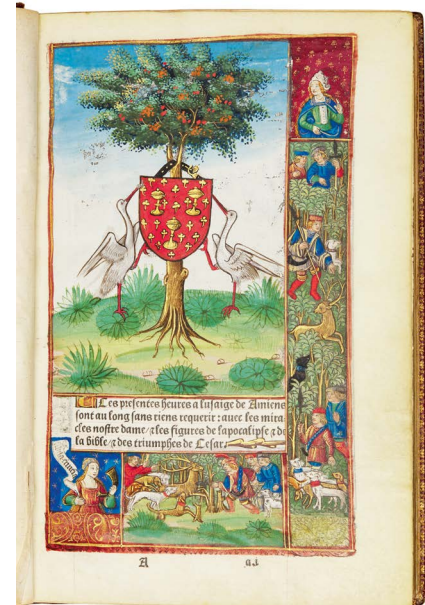 Les presentes heures a lusaige de Amiens
sont au long sans riens requerir : auec les mira
cles nostre dame / & les figures de lapocalipse & de
la bible / & des triumphes de Cesar
A